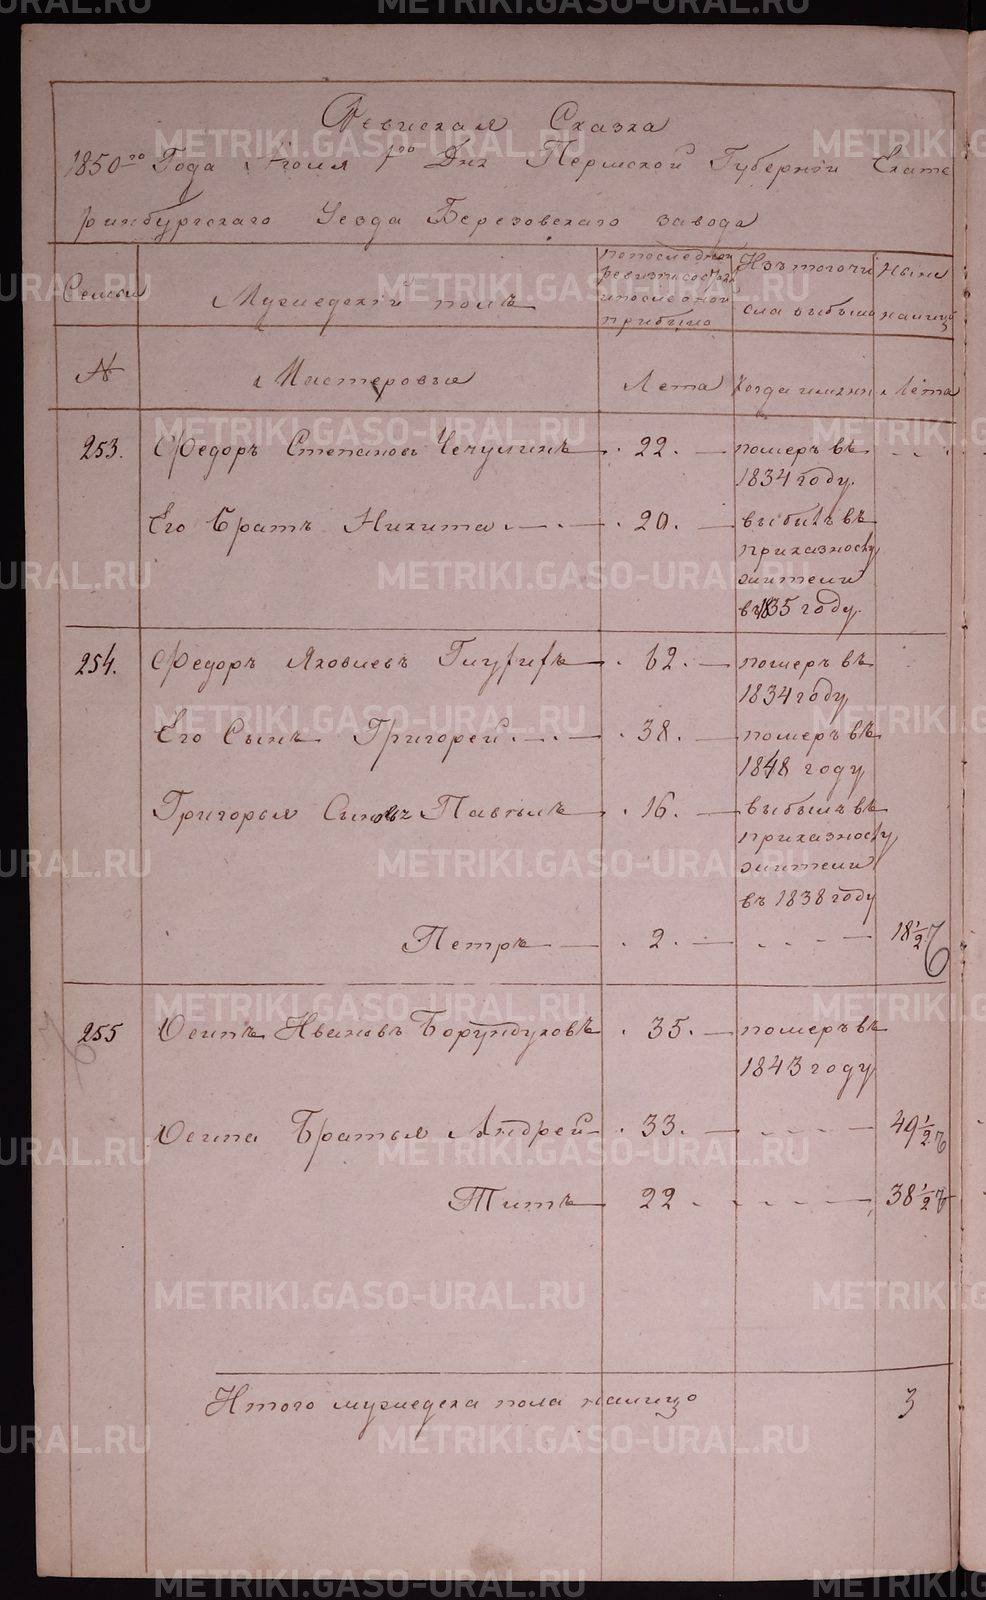 Ревиская Сказка
1850го Года Июля 1го Дня Пермской Губернiи Екате
ринбургскаго Уезда Березовскаго завода
Семьи
Мужиедскiй полъ
попоследней
ревизiи состояло
ипоследной
прибыло
Изътогочи
сла выбыло
Ныне
налицо
№
Мастеровые
Лета
Когда имянн
Лета
253. Федоръ Степановъ Чечулинъ 22. померъ въ
1834 году.
Его братъ Никита 20. выбылъ въ
приказносл
жители
въ 1835 году.
254. Федоръ Яковлевъ 62. померъ въ
1834 году
Его Сынъ Григорей 38. померъ въ
1848 году
Григорья Сыновъ Павелъ 16. выбылъ въ
приказносл
жители
въ 1838 году
Петръ 2. 18 1/2
255 Осипъ Ивановъ Борундуковъ 35. померъ въ
1843 году
Осипа Братья Андрей 33. 49 1/2
Титъ 22 38 1/2
Итого мужиедска пола налицо 3
METRIKI.GASO-URAL.RU